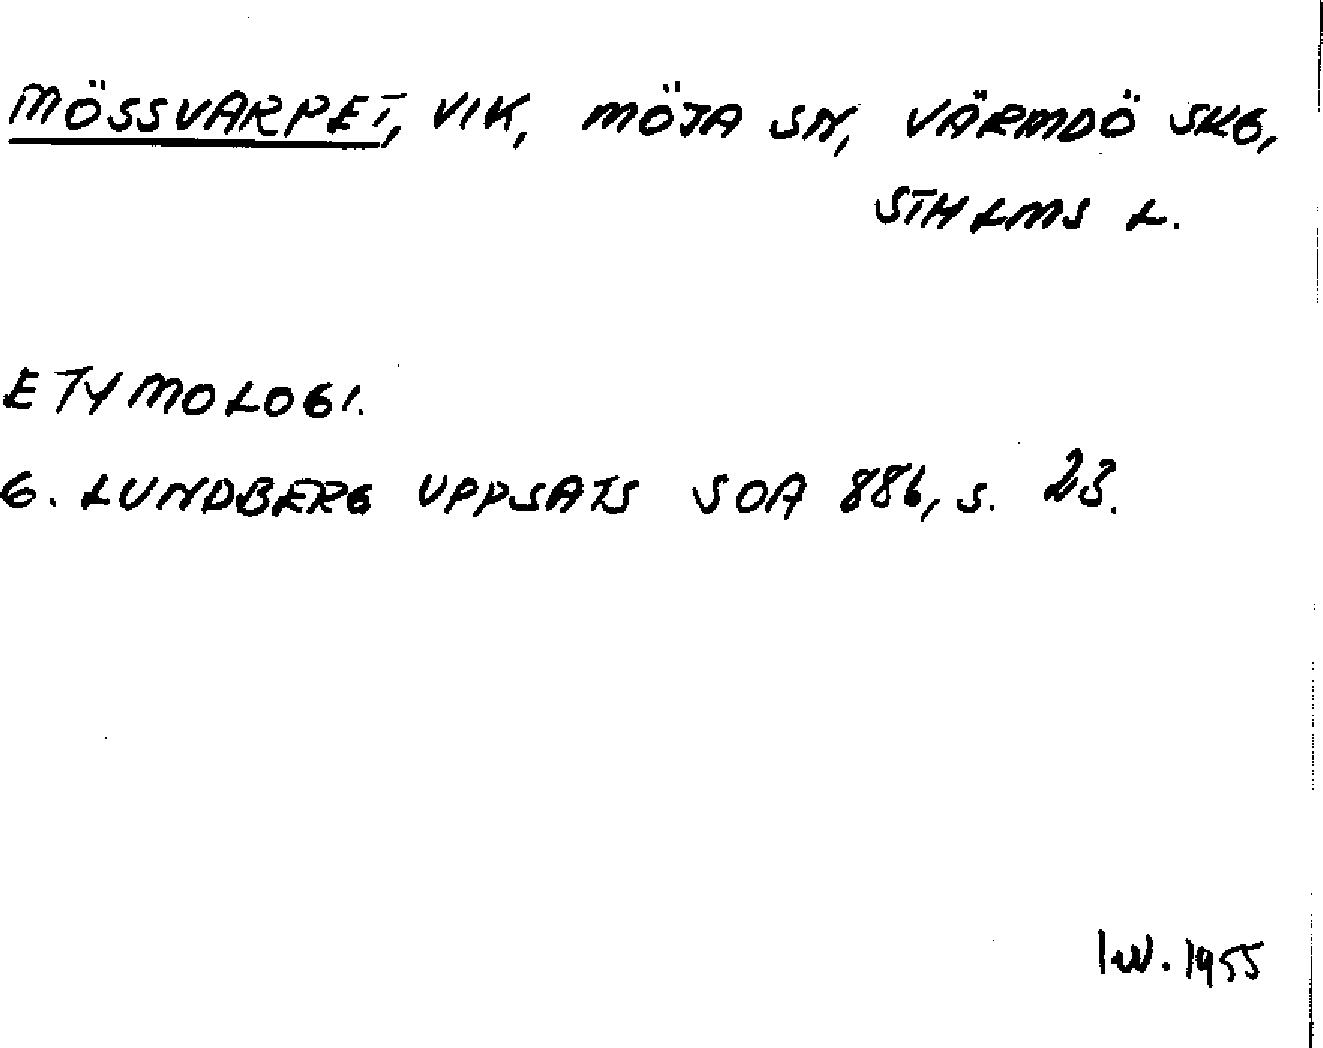 MÖSSVARPET, VIK, MÖJA SN, VÄRMDÖ SKG,
STHLMS L.
ETYMOLOGI.
G. LUNDBERG UPPSATS SOA 886, s. 23.
IW. 1955